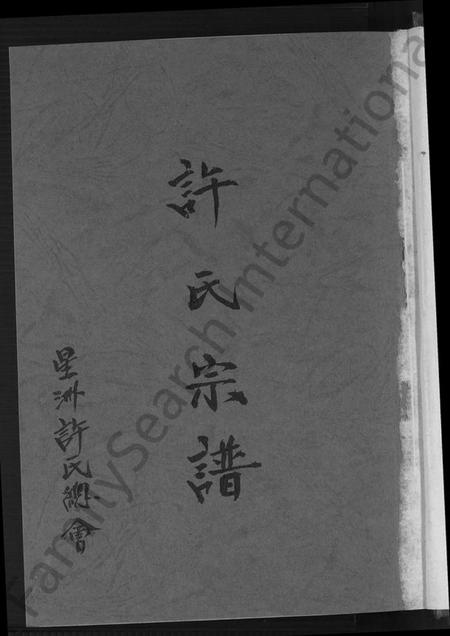 許氏宗譜
星洲許氏總會
FamilySearch International